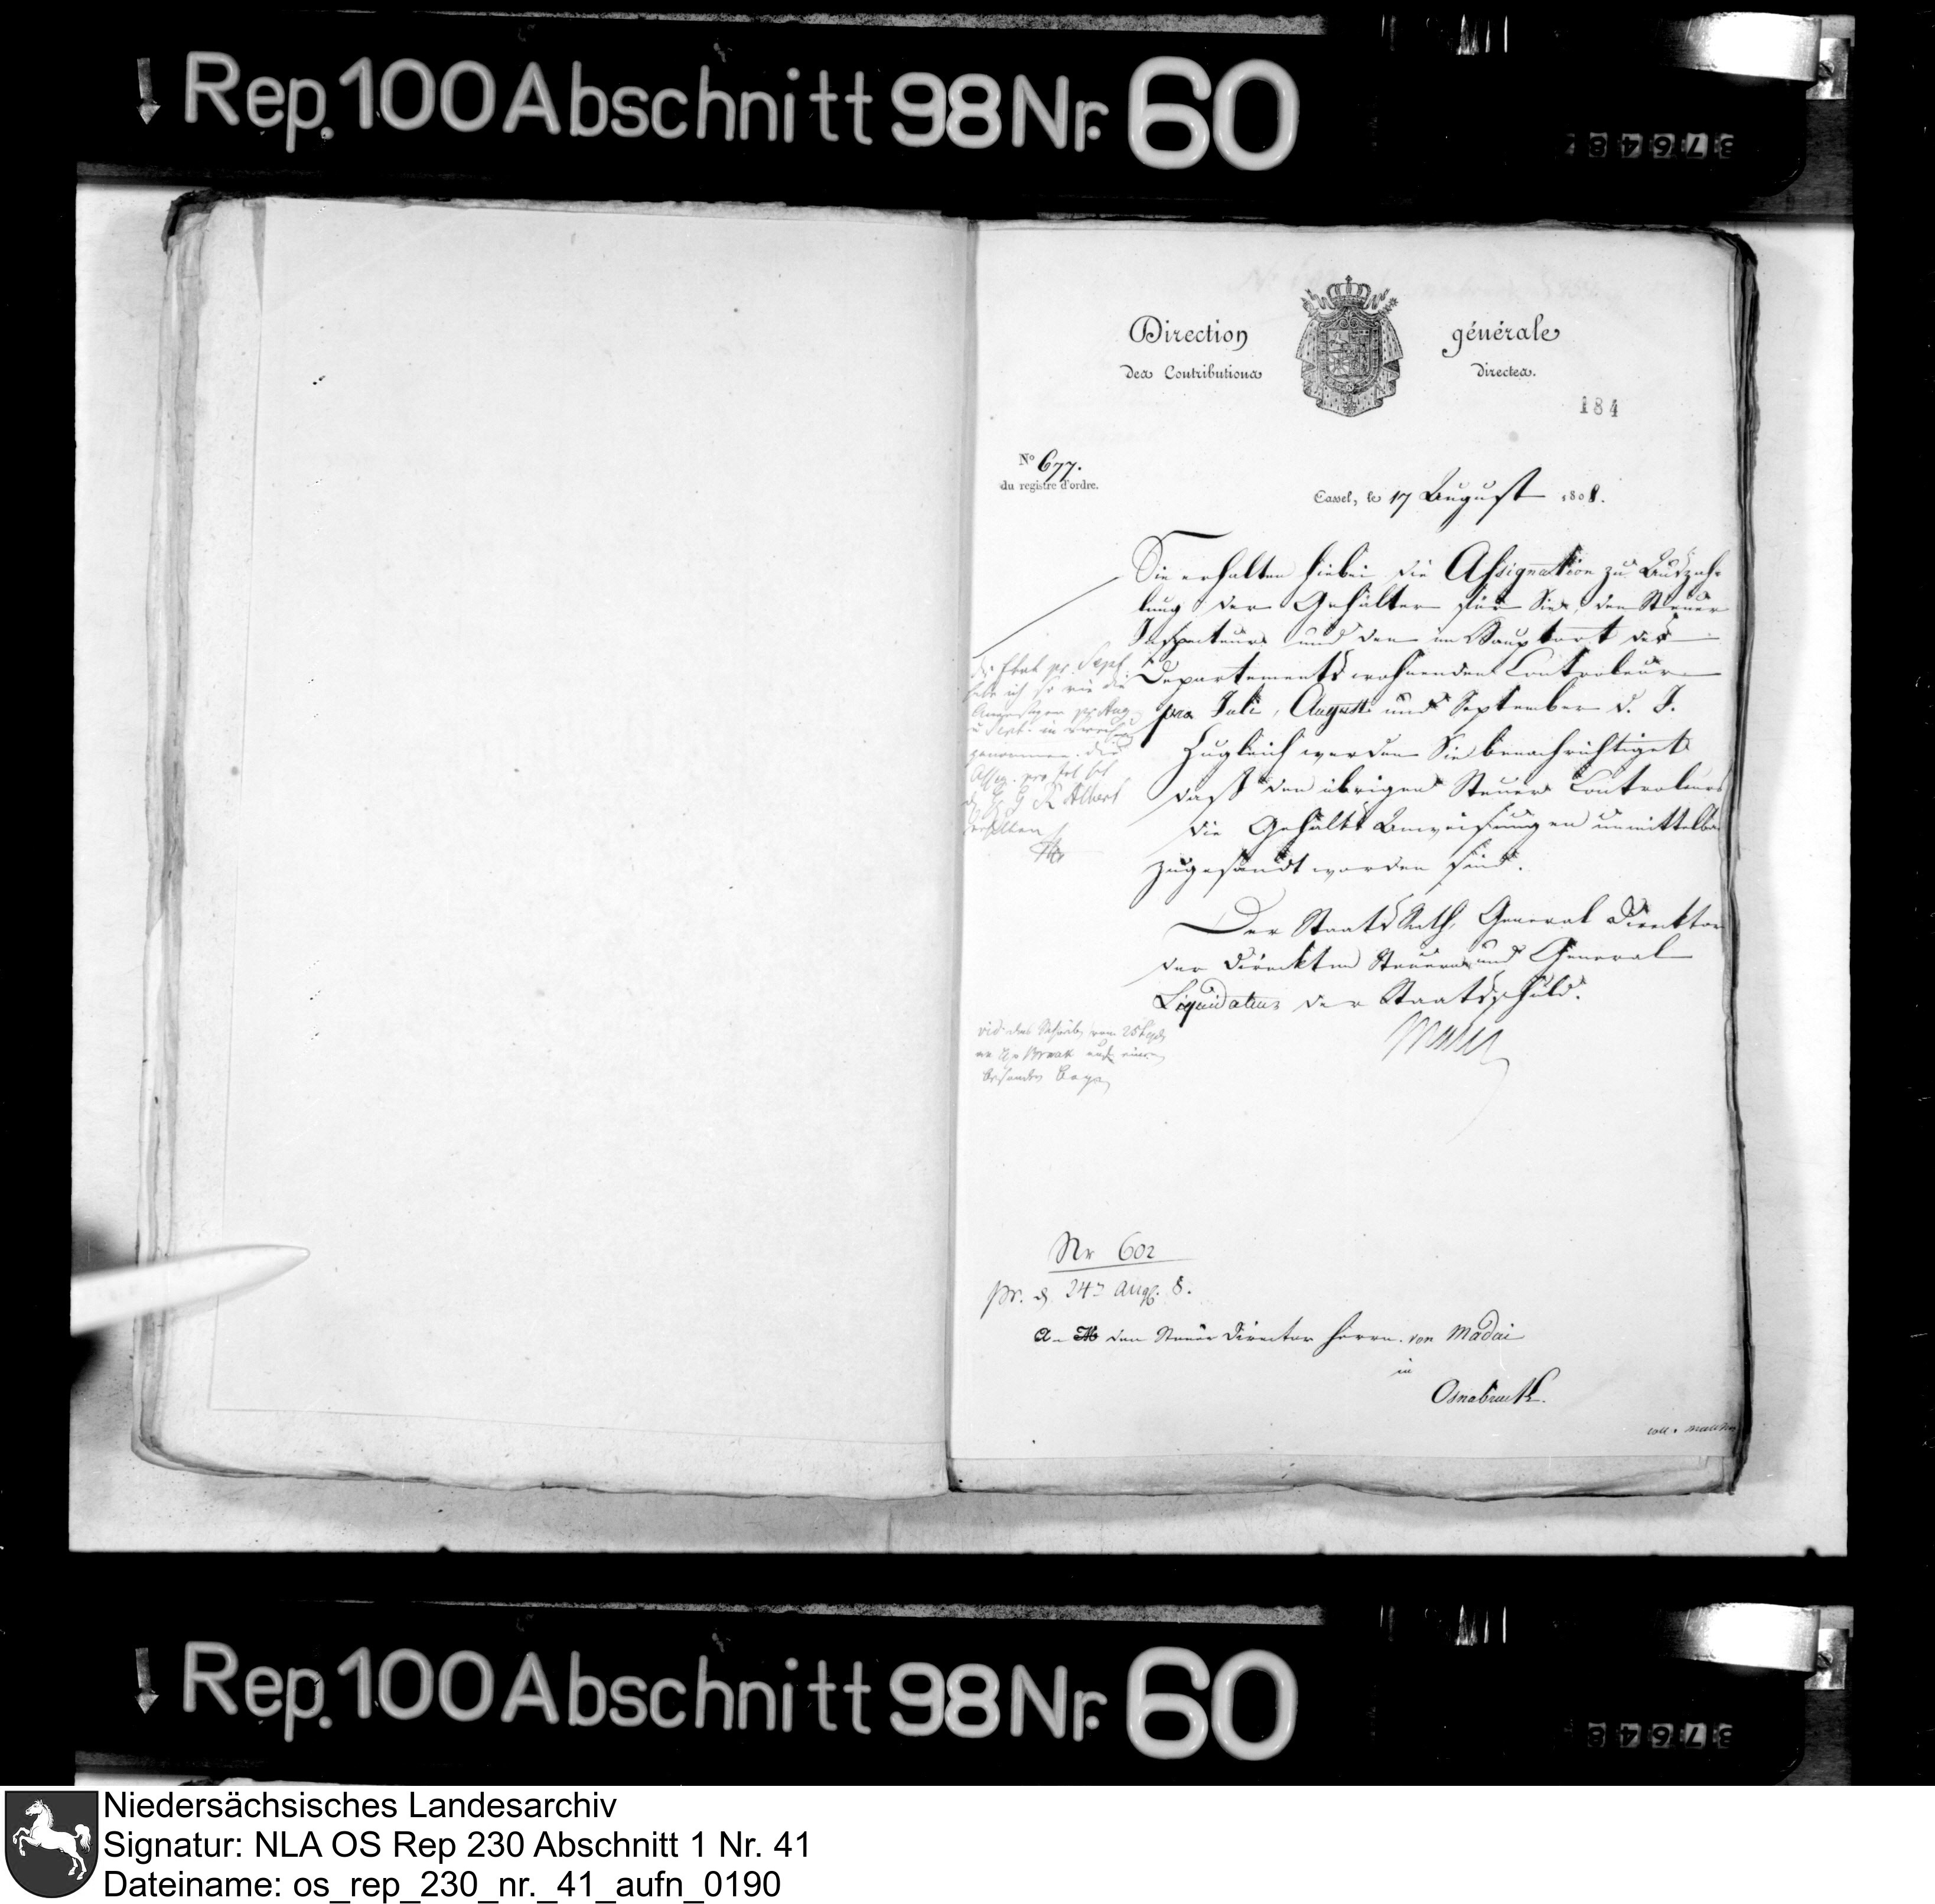 Rep. 100 Abschnitt 98 Nr. 60
Direction générale
des Contributions directes.
184
N° 677.
du registre d'ordre.
Cassel, le 17 August 1808.
Sie erhalten hiebei die Assignation zu Auszah-
lung der Gehälter für Sie, den Steuer
Inspecteur und den im Hauptort des
Departements wohnenden Controleur
pro Juli, August und September d. J.
Zugleich werden Sie benachrichtiget
daß den übrigen Steuer Controleurs
die Gehalts Anweisungen unmittelbar
zugesandt worden sind.
Der StaatsRath, General Direktor
der direkten Steuern und General
Liquidateur der Staatsschuld.
pr. Sept
habe ich so wie die
pr Aug
u Sept. in
genommen. die
Assig. pro
G R Albert
erhalten
vid. das Schreib. vom 25
Nr 602
pr. d. 24t Aug. 8.
An den Steuer Director Herrn von Madai
in
Osnabruck.
Rep. 100 Abschnitt 98 Nr. 60
Niedersächsisches Landesarchiv
Signatur: NLA OS Rep 230 Abschnitt 1 Nr. 41
Dateiname: os_rep_230_nr._41_aufn_0190